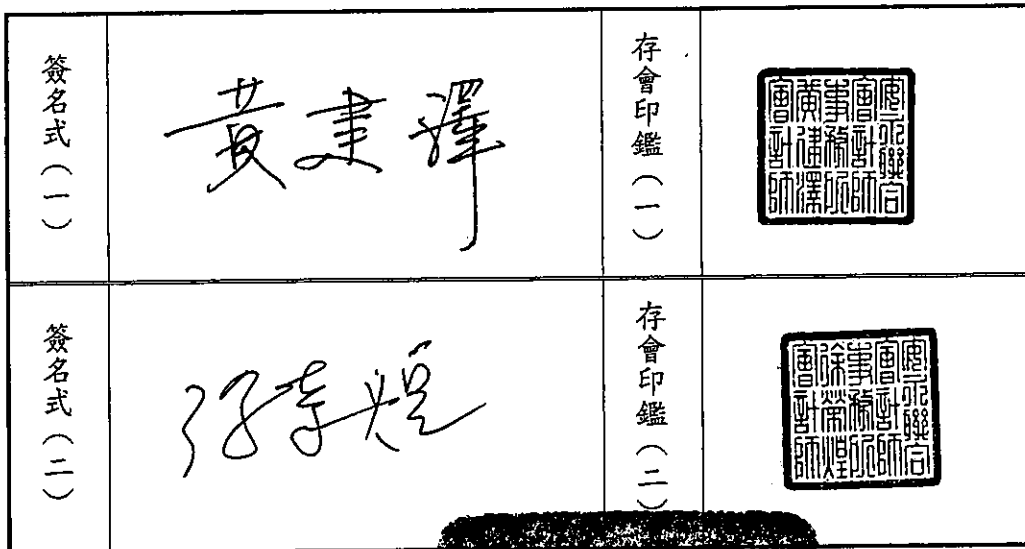 簽名式（一）
黃建澤
存會印鑑（一）
安永聯合
會計師
事務所
黃建澤
會計師
簽名式（二）
徐榮煌
存會印鑑（二）
安永聯合
會計師
事務所
徐榮煌
會計師